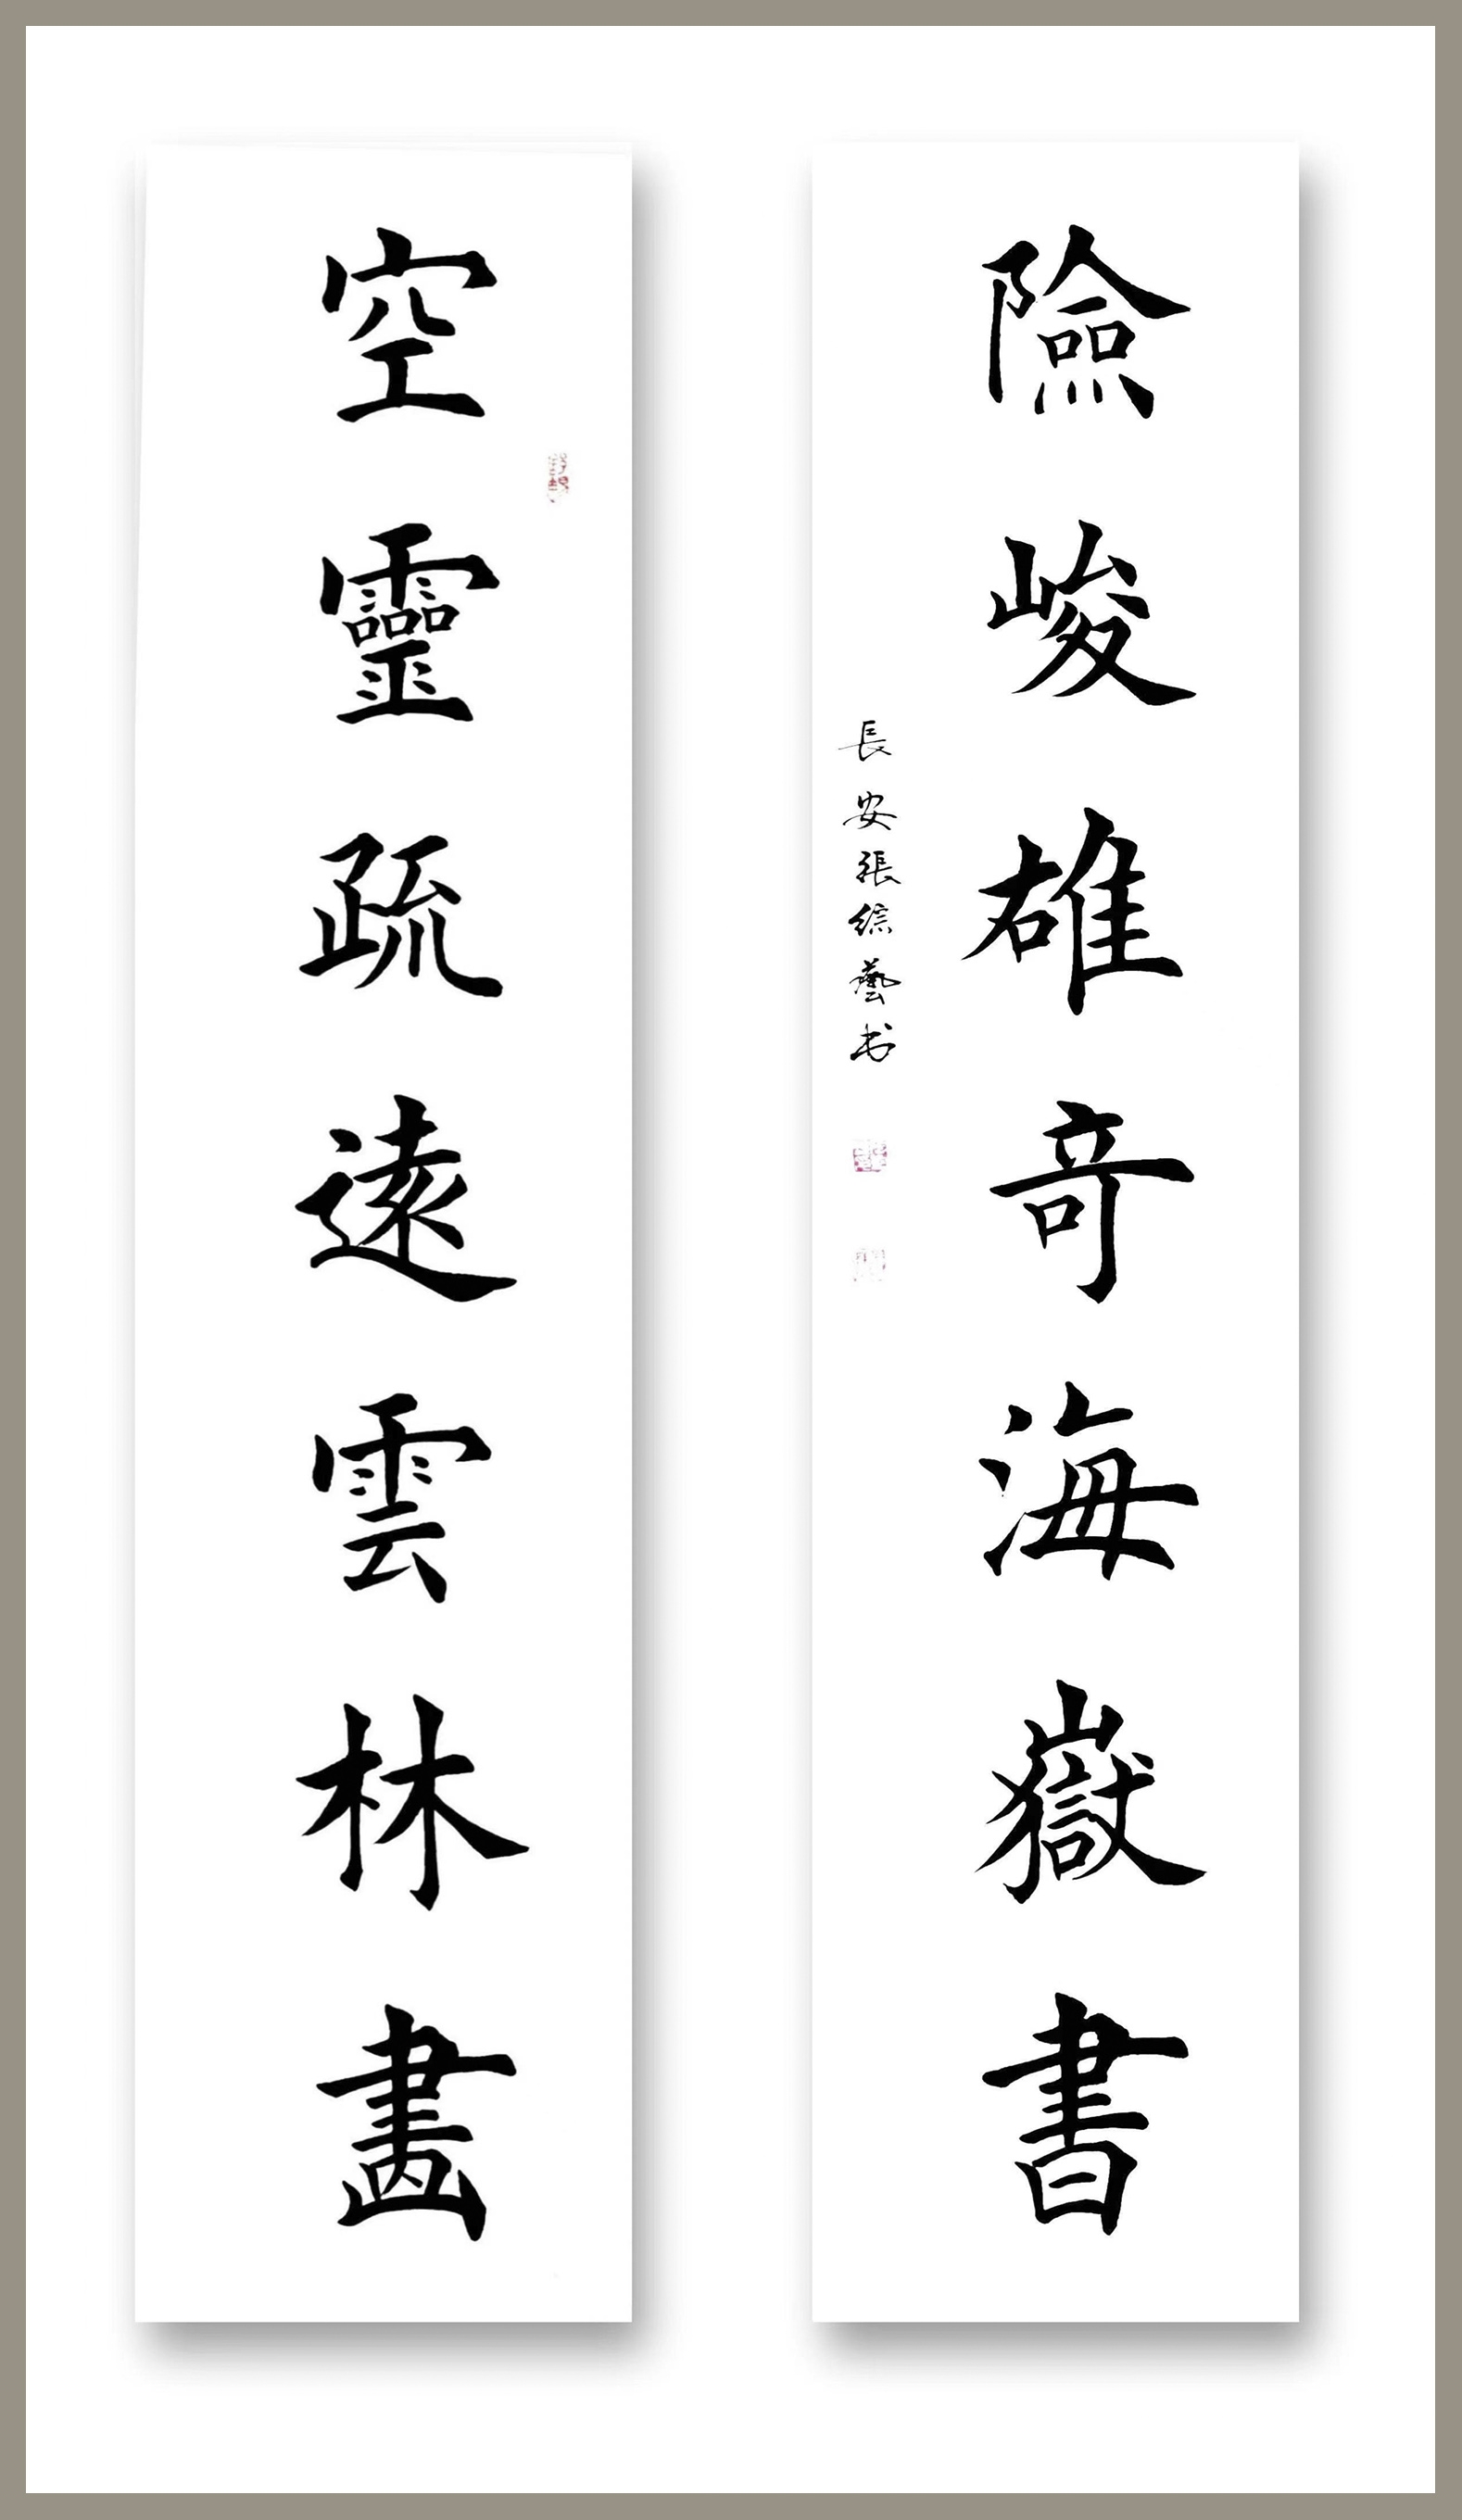 險峻雄奇海嶽書
長安張综藝书
空靈疏遠雲林畫